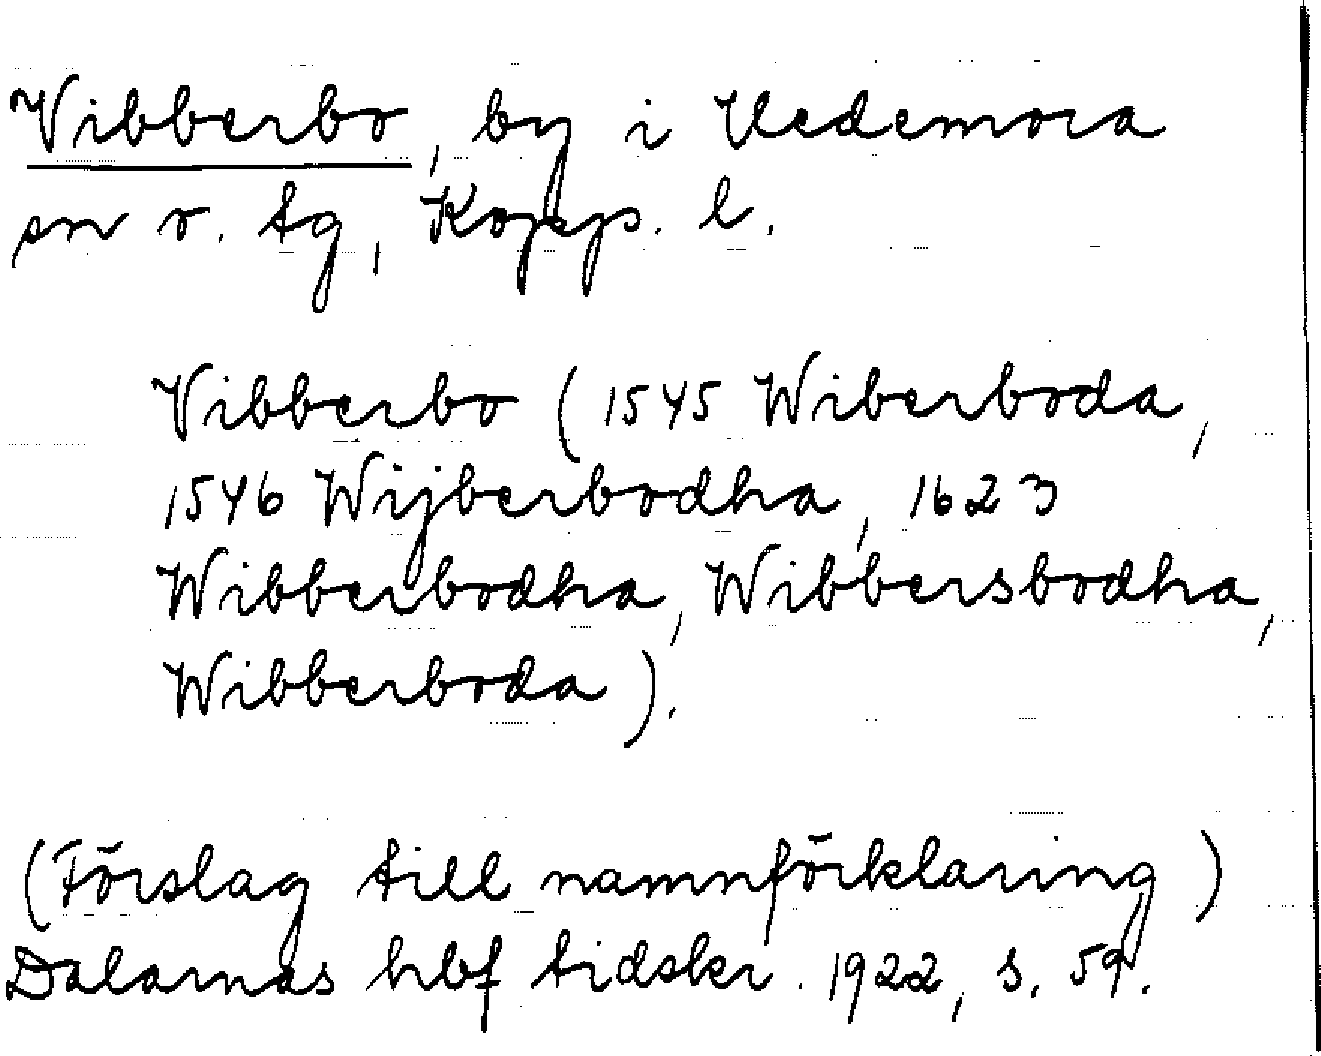 Vibberbo, by i Hedemora
sn o. tg, Kopp. l.
Vibberbo (1545 Wiberboda,
1546 Wijberbodha, 1623
Wibberbodha, Wibbersbodha,
Wibberboda).
(Förslag till namnförklaring)
Dalarnas hbf tidskr. 1922, s. 59.